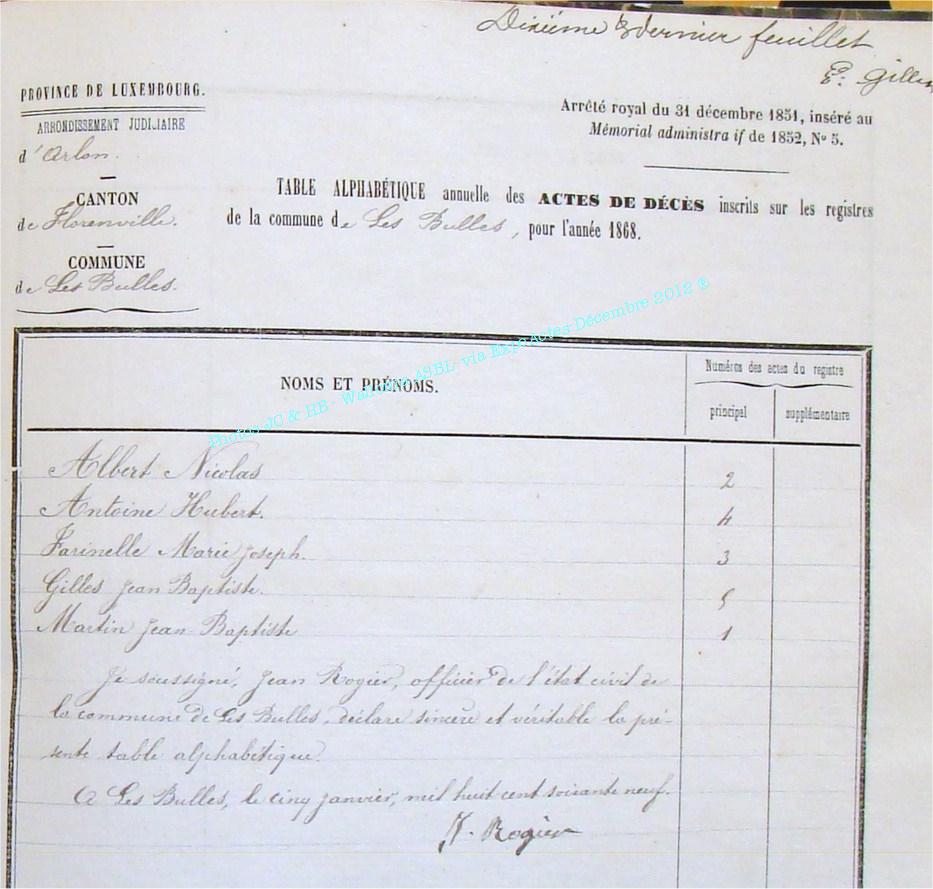 Dixième & dernier feuillet
E. Gillet
PROVINCE DE LUXEMBOURG.
ARRONDISSEMENT JUDICIAIRE
d'Arlon.
CANTON
de Florenville.
COMMUNE
de Les Bulles.
Arrêté royal du 31 décembre 1851, inséré au
Mémorial administra if de 1852, No 5.
TABLE ALPHABÉTIQUE annuelle des ACTES DE DÉCÈS inscrits sur les registres
de la commune de Les Bulles, pour l'année 1868.
Photos JC & HB - Wallonia ASBL, via Expo Actes Décembre 2012 ®
NOMS ET PRÉNOMS.
Numéros des actes du registre
principal
supplémentaire
Albert Nicolas 2
Antoine Hubert. 4
Farinelle Marie Joseph. 3
Gilles Jean Baptiste. 5
Martin Jean Baptiste 1
Je soussigné, Jean Rogier, officier de l'état civil de
la commune de Les Bulles, déclare sincère et véritable la pré-
sente table alphabétique.
A Les Bulles, le cinq janvier, mil huit cent soixante neuf.
J. Rogier